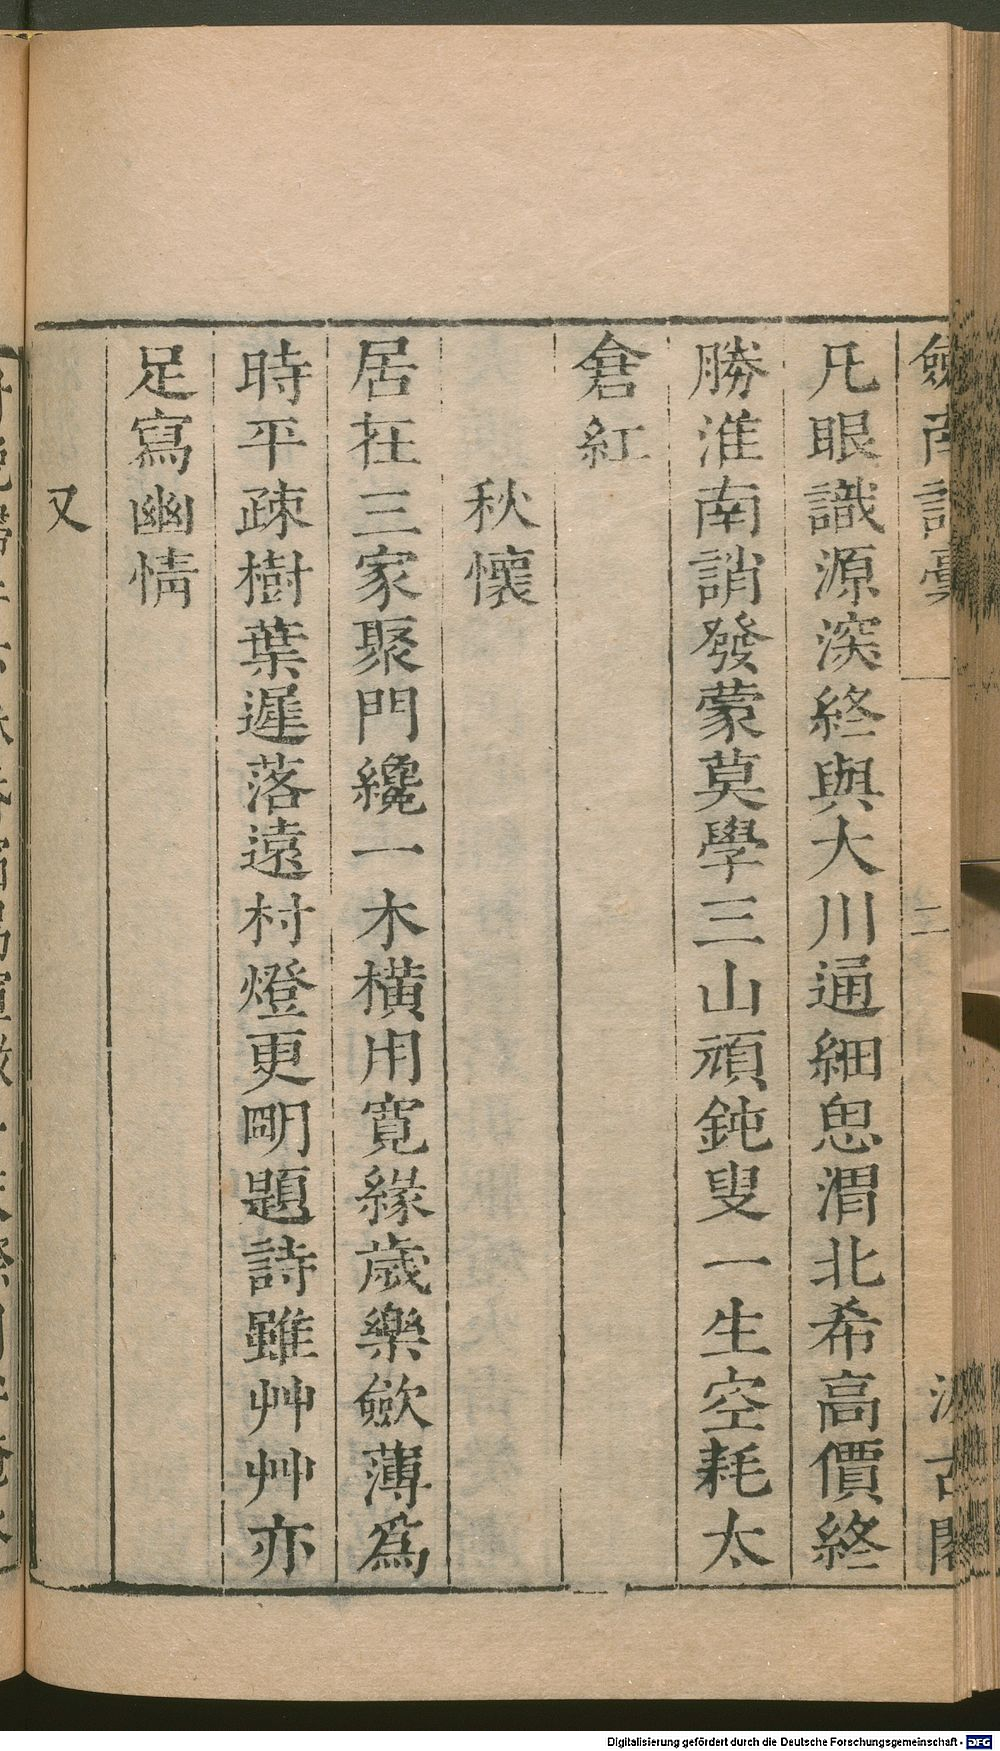 劒南詩稾 二 汲古閣
凡眼識源深終與大川通細思渭北希高價終
勝淮南誚發蒙莫學三山頑鈍叟一生空耗太
倉紅
秋懷
居在三家聚門纔一木橫用寛緣歲樂歛薄爲
時平疎樹葉遲落遠村燈更明題詩雖艸艸亦
足寫幽情
又
Digitalisierung gefördert durch die Deutsche Forschungsgemeinschaft - DFG